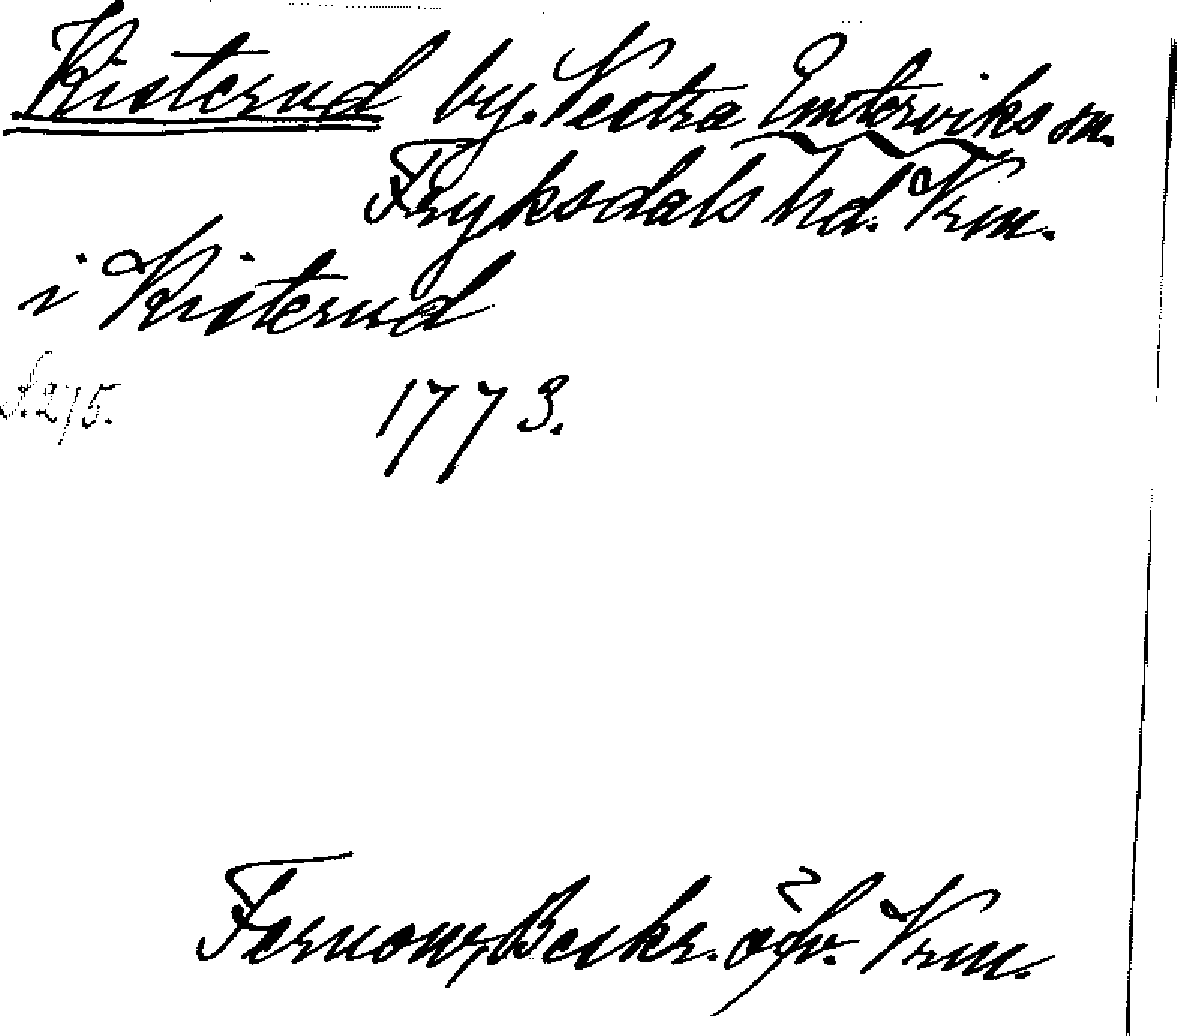 Kisterud by. Vestra Emterviks sn.
Fryksdals hd. Vrm.
i Kisterud
S. 275.
1773.
Fernow, Beskr. öfv. Vrm.